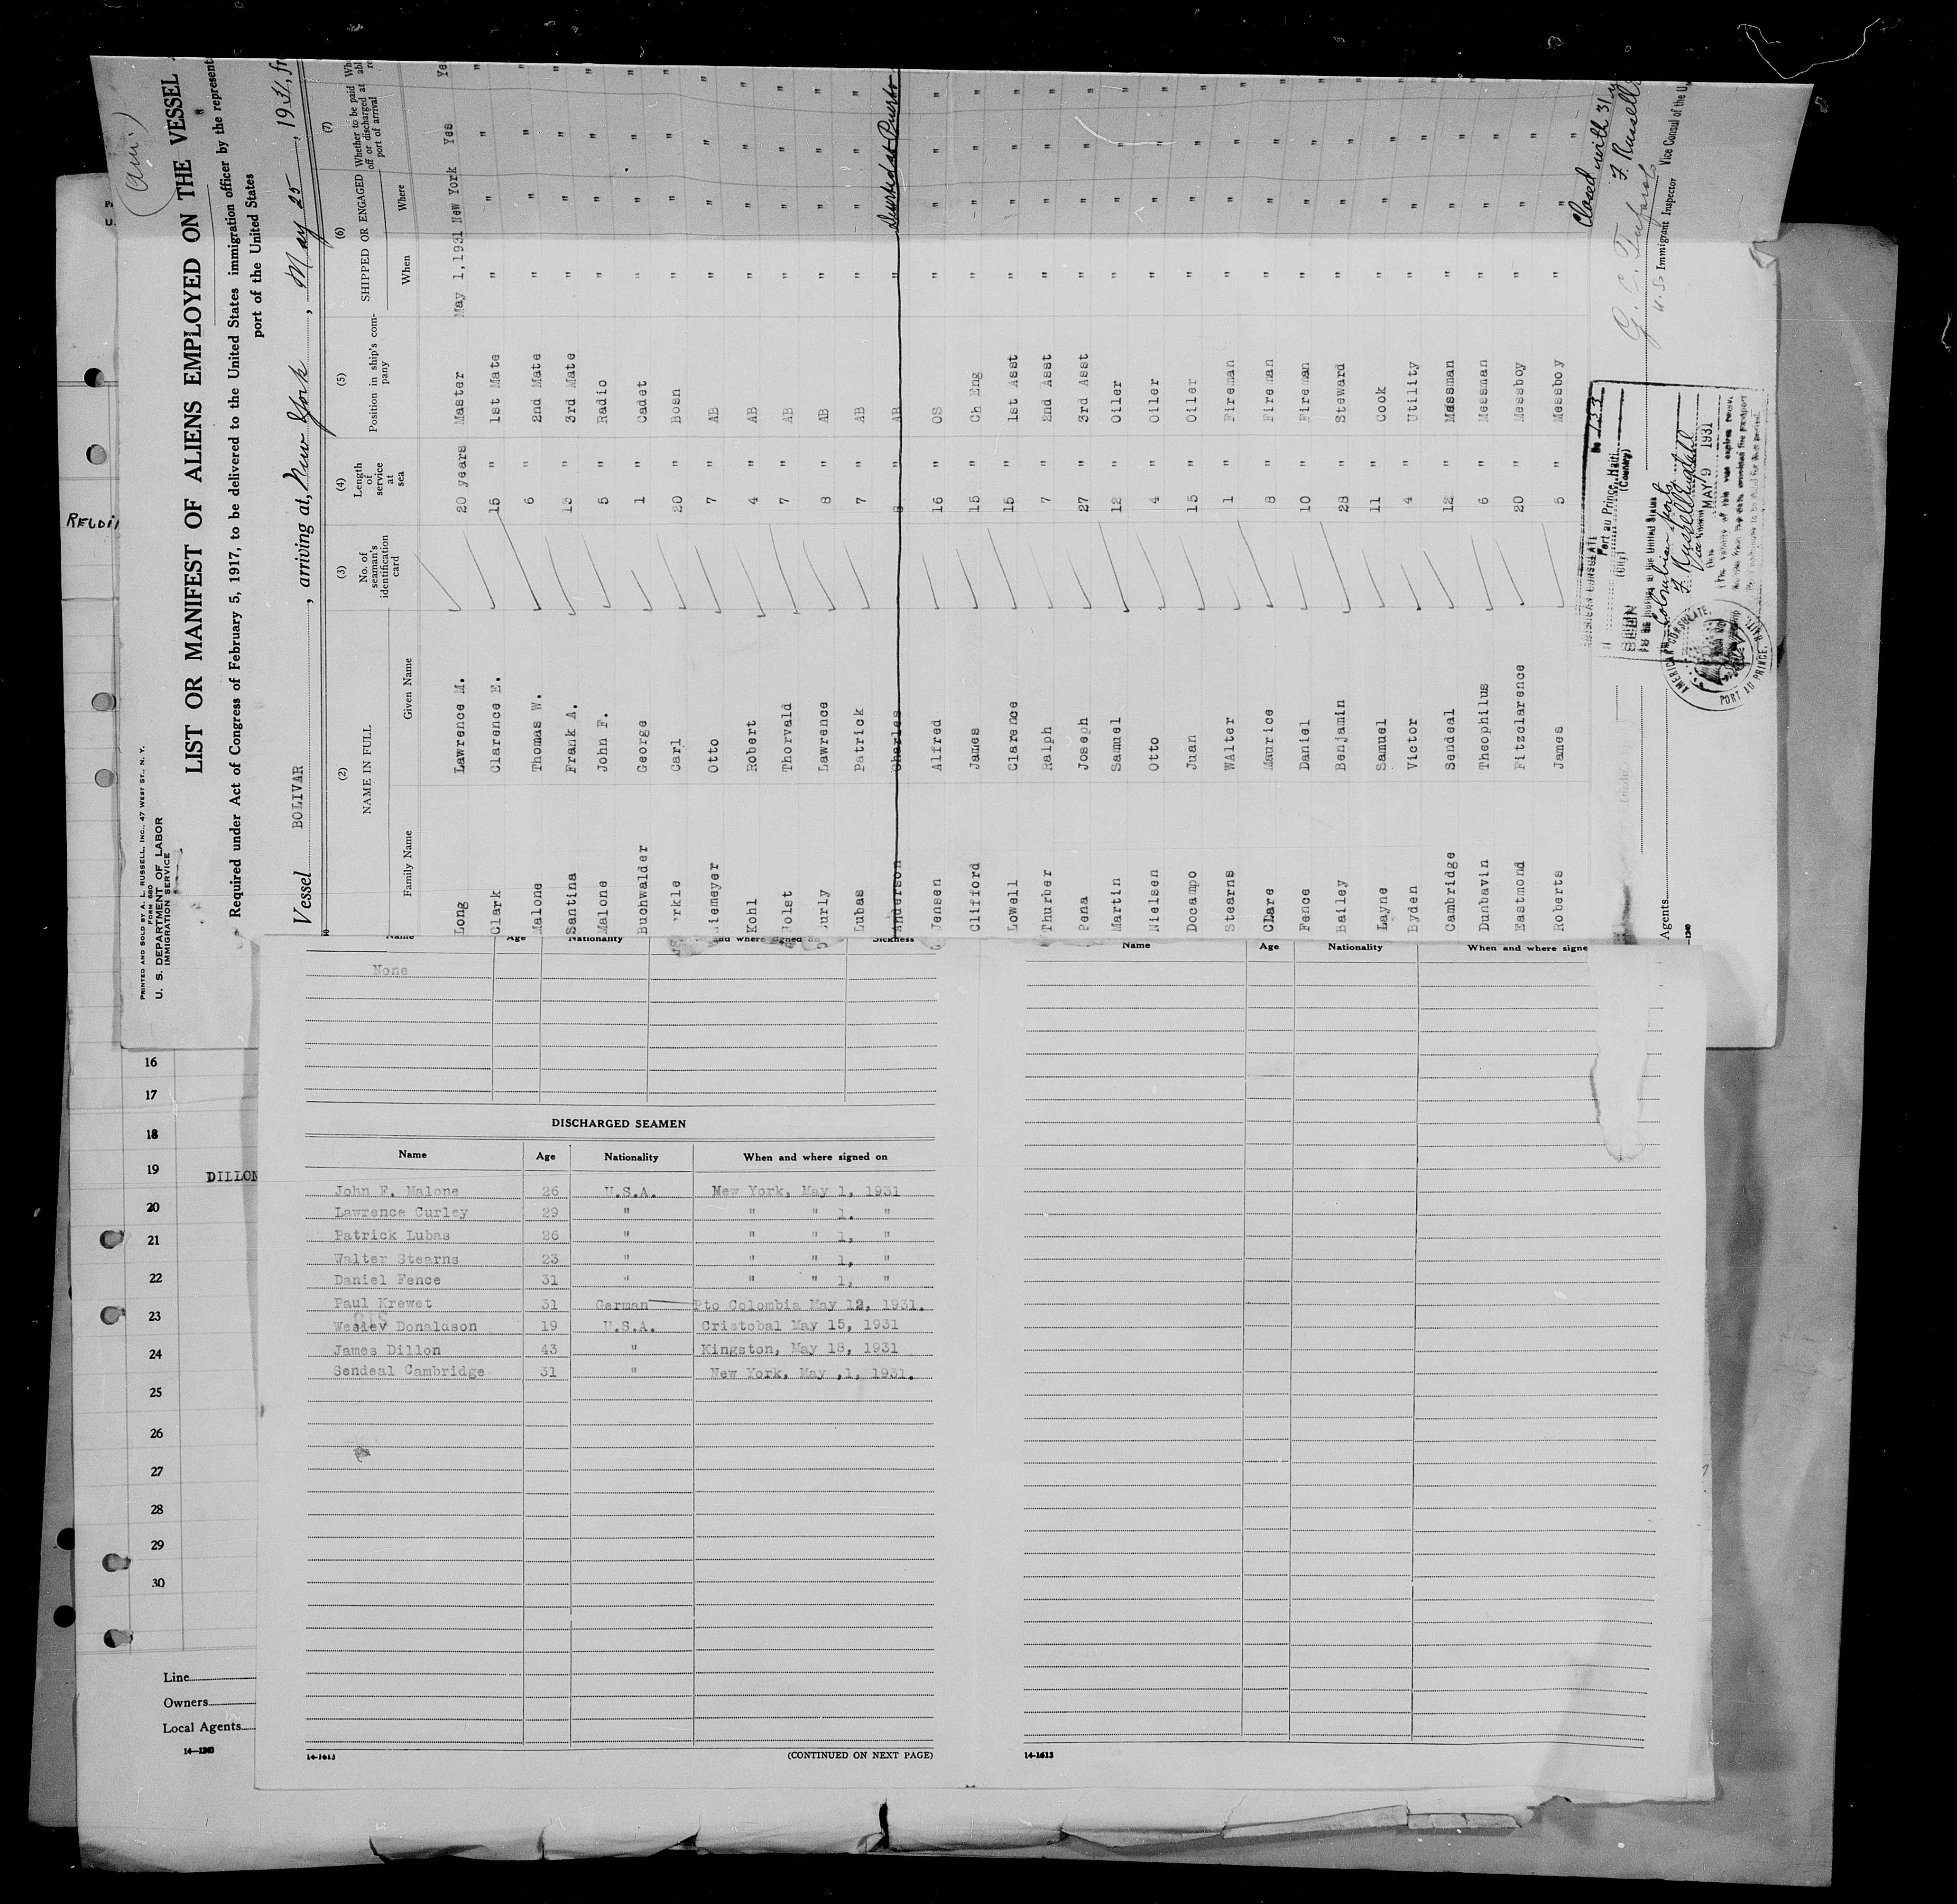 (Am.)
PRINTED AND SOLD BY A. L. RUSSELL, INC., 47 WEST ST., N. Y.
FORM 680
U. S. DEPARTMENT OF LABOR
IMMIGRATION SERVICE
LIST OR MANIFEST OF ALIENS EMPLOYED ON THE VESSEL
Required under Act of Congress of February 5, 1917, to be delivered to the United States immigration officer by the represent
port of the United States
Vessel BOLIVAR, arriving at, New York, May 25, 1931, fr
(2) (3) (4) (5) (6) (7)
NAME IN FULL No. of seaman's identification card Length of service at sea Position in ship's company SHIPPED OR ENGAGED Whether to be paid off or discharged at port of arrival
Family Name Given Name When Where
Long Lawrence M. 20 years Master May 1, 1931 New York Yes Ye
Clark Clarence E. 15 " 1st Mate " " " "
Malone Thomas W. 6 " 2nd Mate " " " "
Santina Frank A. 13 " 3rd Mate " " " "
Malone John F. 5 " Radio " " " "
Buchwalder George 1 " Cadet " " " "
rkle Carl 20 " Bosn " " " "
iemeyer Otto 7 " AB " " " "
Kohl Robert 4 " AB " " " "
olst Thorvald 7 " AB " " " "
urly Lawrence 8 " AB " " " "
Lubas Patrick 7 " AB " " " "
Anderson Charles 8 " AB " Deserted at Puerto
Jensen Alfred 16 " OS " " " "
Clifford James 15 " Ch Eng " " " "
Lowell Clarence 15 " 1st Asst " " " "
Thurber Ralph 7 " 2nd Asst " " " "
Pena Joseph 27 " 3rd Asst " " " "
Martin Samuel 12 " Oiler " " " "
Nielsen Otto 4 " Oiler " " " "
Docampo Juan 15 " Oiler " " " "
Stearns WAlter 1 " Fireman " " " "
Clare Maurice 8 " Fireman " " " "
Fence Daniel 10 " Fireman " " " "
Bailey Benjamin 28 " Steward " " " "
Layne Samuel 11 " Cook " " " "
Byden Victor 4 " Utility " " " "
Cambridge Sendeal 12 " Messman " " " "
Dunbavin Theophilus 6 " Messman " " " "
Eastmond Fitzclarence 20 " Messboy " " " "
Roberts James 5 " Messboy " " " "
Closed with 31
F. Russell
U.S. Immigrant Inspector Vice Consul of the U.
AMERICAN CONSULATE
Port au Prince, Haiti
(City) (Country)
No 133
SEEN
Colombian ports
MAY 9 1931
AMERICAN CONSULATE
PORT AU PRINCE, HAITI
Agents
Name Age Nationality and where signed on Sickness
None
DISCHARGED SEAMEN
Name Age Nationality When and where signed on
John F. Malone 26 U.S.A. New York, May 1, 1931
Lawrence Curley 29 " " " 1. "
Patrick Lubas 26 " " " 1, "
Walter Stearns 23 " " " 1, "
Daniel Fence 31 " " " 1, "
Paul Krewet 31 German Pto Colombia May 12, 1931.
Wesley Donaldson 19 U.S.A. Cristobal May 15, 1931
James Dillon 43 " Kingston, May 18, 1931
Sendeal Cambridge 31 " New York, May ,1, 1931.
14-1613
(CONTINUED ON NEXT PAGE)
Name Age Nationality When and where signe
14-1613
16
17
18
19 DILLON
20
21
22
23
24
25
26
27
28
29
30
Line
Owners
Local Agents
14—1240